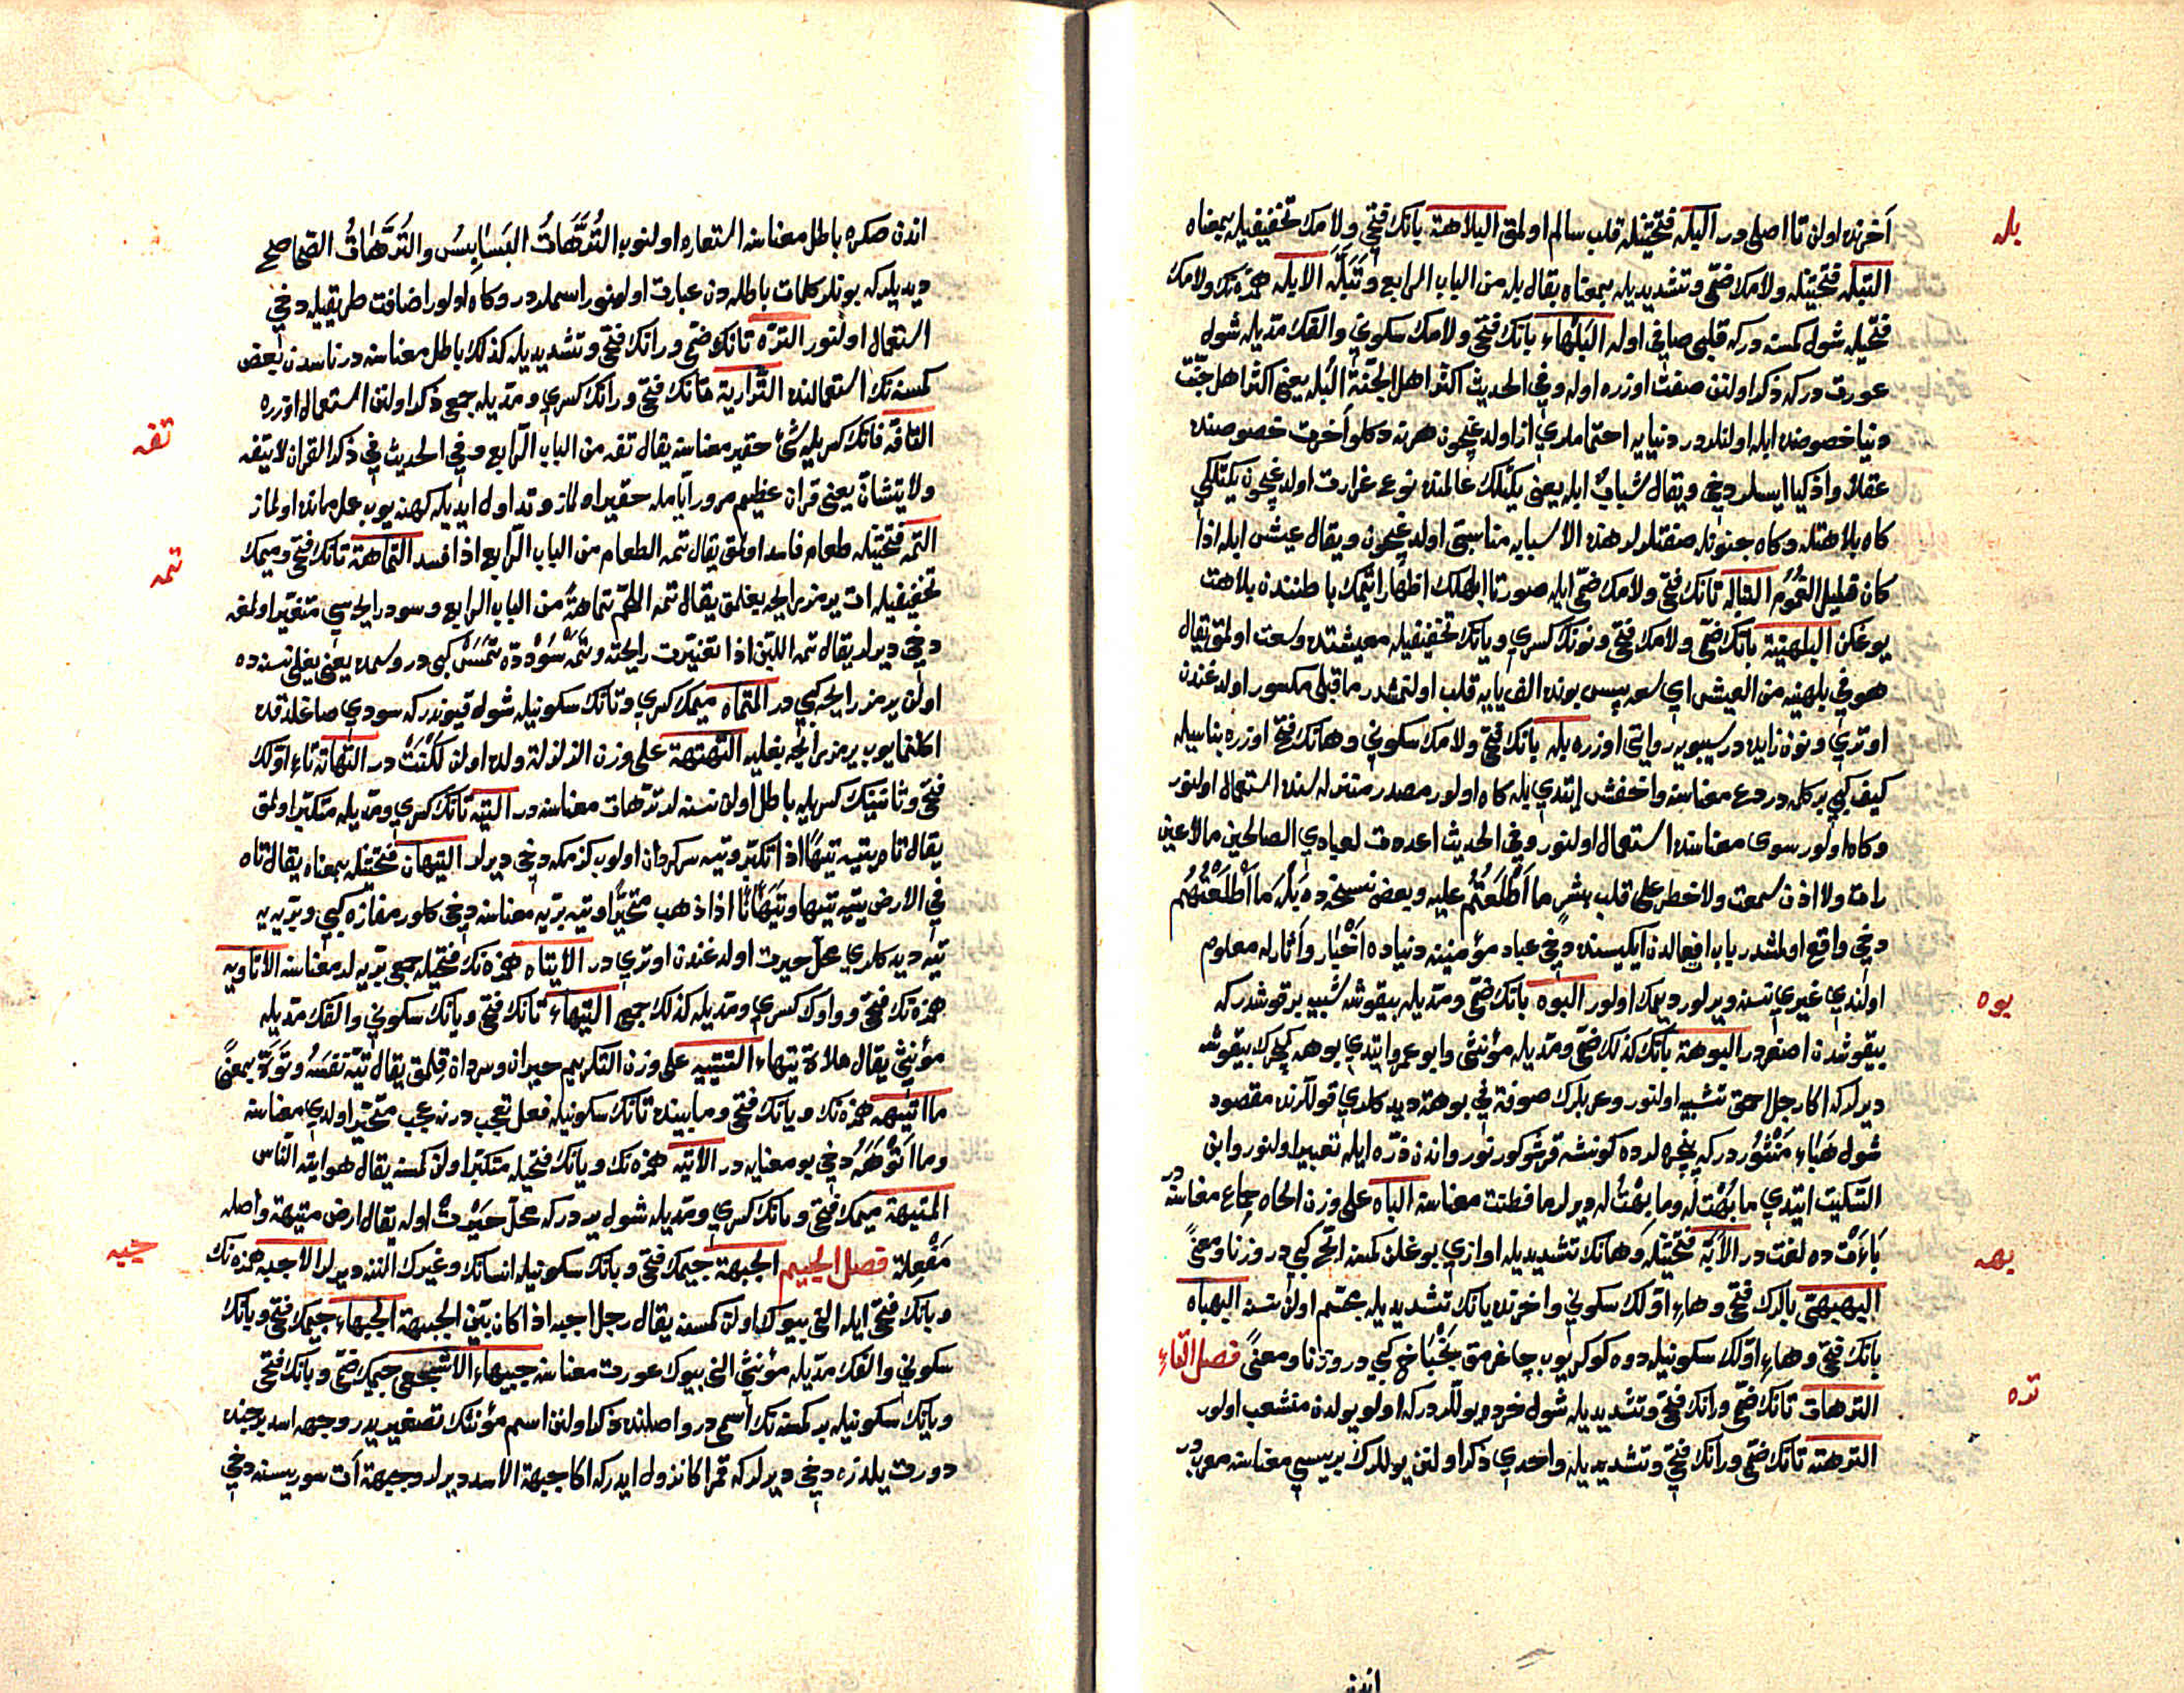 بله
آخرنده اولن تا اصلی در البله فتحتیله قلب سالم اولمق البلاهة بانك فتحی ولامك تخفیفیله بمعناه
التبله فتحتیله ولامك ضمی وتشدیدیله بمعناه یقال بله من الباب الرابع وتبله الابله همزه نك ولامك
فتحیله شول كمسنه دركه قلبی صافی اوله البلهاء بانك فتحی ولامك سكونی والفك مدیله شول
عورت دركه ذكر اولنن صفت اوزره اوله وفی الحدیث اكثر اهل الجنة البله یعنی اكثر اهل جنت
دنیا خصوصنده ابله اولنلردر دنیایه اهتماملری از اولدیغیچون هرنه دكلو آخرت خصوصنده
عقلا واذكیا ایسلر دخی ویقال شباب ابله یعنی یكیتلك عالمنده نوع غرارت اولدیغیچون یكیتلكی
كاه بلاهتله وكاه جنونله صفتلرلر هذه الاسبابه مناسبتی اولدیغیچون ویقال عیش ابله اذا
كان قلیل الغموم التباله تانك فتحی ولامك ضمی ایله صورتا ابلهلك اظهار ایتمك باطننده بلاهت
یوغكن البلهنیة بانك ضمی ولامك فتحی ونونك كسری ویانك تخفیفیله معیشتده وسعت اولمق یقال
هو فی بلهنیه من العیش ای سعه پس بونده الف یایه قلب اولنمشدر ماقبلی مكسور اولدغندن
اوتری ونون زایده در سیبویه روایتی اوزره بله بانك فتحی ولامك سكونی وهانك فتحی اوزره بناسیله
كیف كبی بر كله در دع معناسنه واخفش ایتدی بله كاه اولور مصدر منزله سنده استعمال اولنور
وكاه اولور سوی معناسنده استعمال اولنور وفی الحدیث اعددت لعبادی الصالحین ما لا عین
رات ولا اذن سمعت ولا خطر علی قلب بشر ما اطلعتم علیه وبعض نسخه ده بله ما اطلعتهم
دخی واقع اولمشدر باب افعالدن ایكیسنده دخی عباد مؤمنینه دنیاده اخبار وآثارله معلوم
بوه
اولندی غیری نسنه ویرلور دیمك اولور البوه بانك ضمی ومدیله بیقوشه شبیه بر قوشدركه
بیقوشدن اصغردر البوهة بانك كذلك ضمی ومدیله مؤنثی وابو عمرو ایتدی بوهه كچرك بیقوشه
دیرلركه اكا رجل احمق تشبیه اولنور وعربلرك صوفة فی بوهة دیدكلری قوللرنده مقصود
شول هباء منثوردركه پنجره لرده كونشه قرشو كورنور واندن ذره ایله تعبیر اولنور وابن
السكیت ایتدی ما بهت له وما بهت له دیرلر ما فطنت معناسنه الباه علی وزن الجاه جماع معناسنه در
بهه
باءت ده لغت در الابه فتحتیله وهانك تشدیدیله اوازی بوغلن كمسنه ابح كبی در وزنا ومعنی
البهبهی بالرك فتحی وهاء اولك سكونی واخرنده یانك تشدیدیله جسیم اولن نسنه البهباه
بانك فتحی وهاء اولك سكونیله دوه كوكریوب چاغرمق بخباخ كبی در وزنا ومعنی فصل التاء
تره
الترهات تانك ضمی ورانك فتحی وتشدیدیله شول خرده یوللردركه اولو یولدن منشعب اولور
الترهة تانك ضمی ورانك فتحی وتشدیدیله واحدی ذكر اولنن یوللرك بریسی معناسنه معربدر
اندن
اندن صكره باطل معناسنه استعاره اولنوب الترهات البسابس والترهات الصحاصح
دیدیلركه بونلر كلمات باطله دن عبارت اولنور اسملردر وكاه اولور اضافت طریقیله دخی
استعمال اولنور التره تانك ضمی ورانك فتحی وتشدیدیله كذلك باطل معناسنه در ناسدن بعض
كمسنه نك استعمالنده التراریه تانك فتحی ورانك كسری ومدیله جمعی ذكر اولنن استعمال اوزره
تفه
التافه فانك كسریله شئ حقیر معناسنه یقال تفه من الباب الرابع وفی الحدیث فی ذكر القران لا یتفه
ولا یتشان یعنی قران عظیم مرور ایامله حقیر اولماز وتداول ایدیله كهنه یوب علملماندن اولماز
تمه
التمه فتحتیله طعام فاسد اولمق یقال تمه الطعام من الباب الرابع اذا فسد التماهة تانك فتحی ومیمك
تخفیفیله ات یرمز رایحه بغلمق یقال تمه اللحم تماهة من الباب الرابع وسود رایحه سی متغیر اولمغه
دخی دیرلر یقال تمه اللبن اذا تغیرت رایحته وتمه سودده تمس كبی در وسمده یعنی یغلی نسنه ده
اولن یرمز رایحه كبی در المتماه میمك كسری وتانك سكونیله شول قیوندركه سودی صاغلدقده
اكلنمایوب یرمز رایحه بغلیه التهتهة علی وزن الزلزلة دلده اولن لكنت در التهاته تاء اولك
فتحی وثانینك كسریله باطل اولن نسنه لر ترهات معناسنه در التیه تانك كسری ومدیله متكبر اولمق
یقال تاه یتیه تیها اذا تكبر وتیه سركردان اولوب كزمكه دخی دیرلر التیهان فتحتیله بمعناه یقال تاه
فی الارض یتیه تیها وتیهانا اذا ذهب متحیرا وتیه بریه معناسنه دخی كلور مفازه كبی وبریه یه
تیه دیدكلری محل حیرت اولدغندن اوتری در الاتیاه همزه نك فتحیله جمعی بریه لر معناسنه الاتاویه
همزه نك فتحی وواوك كسری ومدیله كذلك جمعی التیهاء تانك فتحی ویانك سكونی والفك مدیله
مؤنثی یقال فلاة تیهاء التتییه علی وزن التكریم حیران وسرداة قلمق یقال تیه نفسه وتوه بمعنی
ما اتیهه همزه نك ویانك فتحی ومابینده تانك سكونیله فعل تعجب در نه عجب متحیر اولدی معناسنه
وما اتوهه دخی بو معنایه در الاتیه همزه نك ویانك فتحیله متكبر اولن كمسنه یقال هو اتیه الناس
المتیهة میمك فتحی وتانك كسری ومدیله شول یردركه محل حیرت اوله یقال ارض متیهة واصله
جبه
مفعلة فصل الجیم الجبهة جیمك فتحی وبانك سكونیله انسانك وغیرك النه دیرلر الاجبه همزه نك
وبانك فتحی ایله النی بیوك اولن كمسنه یقال رجل اجبه اذا كان بین الجبهة الجبهاء جیمك فتحی وبانك
سكونی والفك مدیله مؤنثی النی بیوك عورت معناسنه جبیهاء الاشجعی جیمك ضمی وبانك فتحی
ویانك سكونیله بر كمسنه نك اسمی در واصلنده ذكر اولنن اسم مؤنثك تصغیریدر وجبهه اسد برجنده
دورت یلدزه دخی دیرلركه قمر اكا نزول ایدركه اكا جبهة الاسد دیرلر وجبهة آت سوریسنه دخی